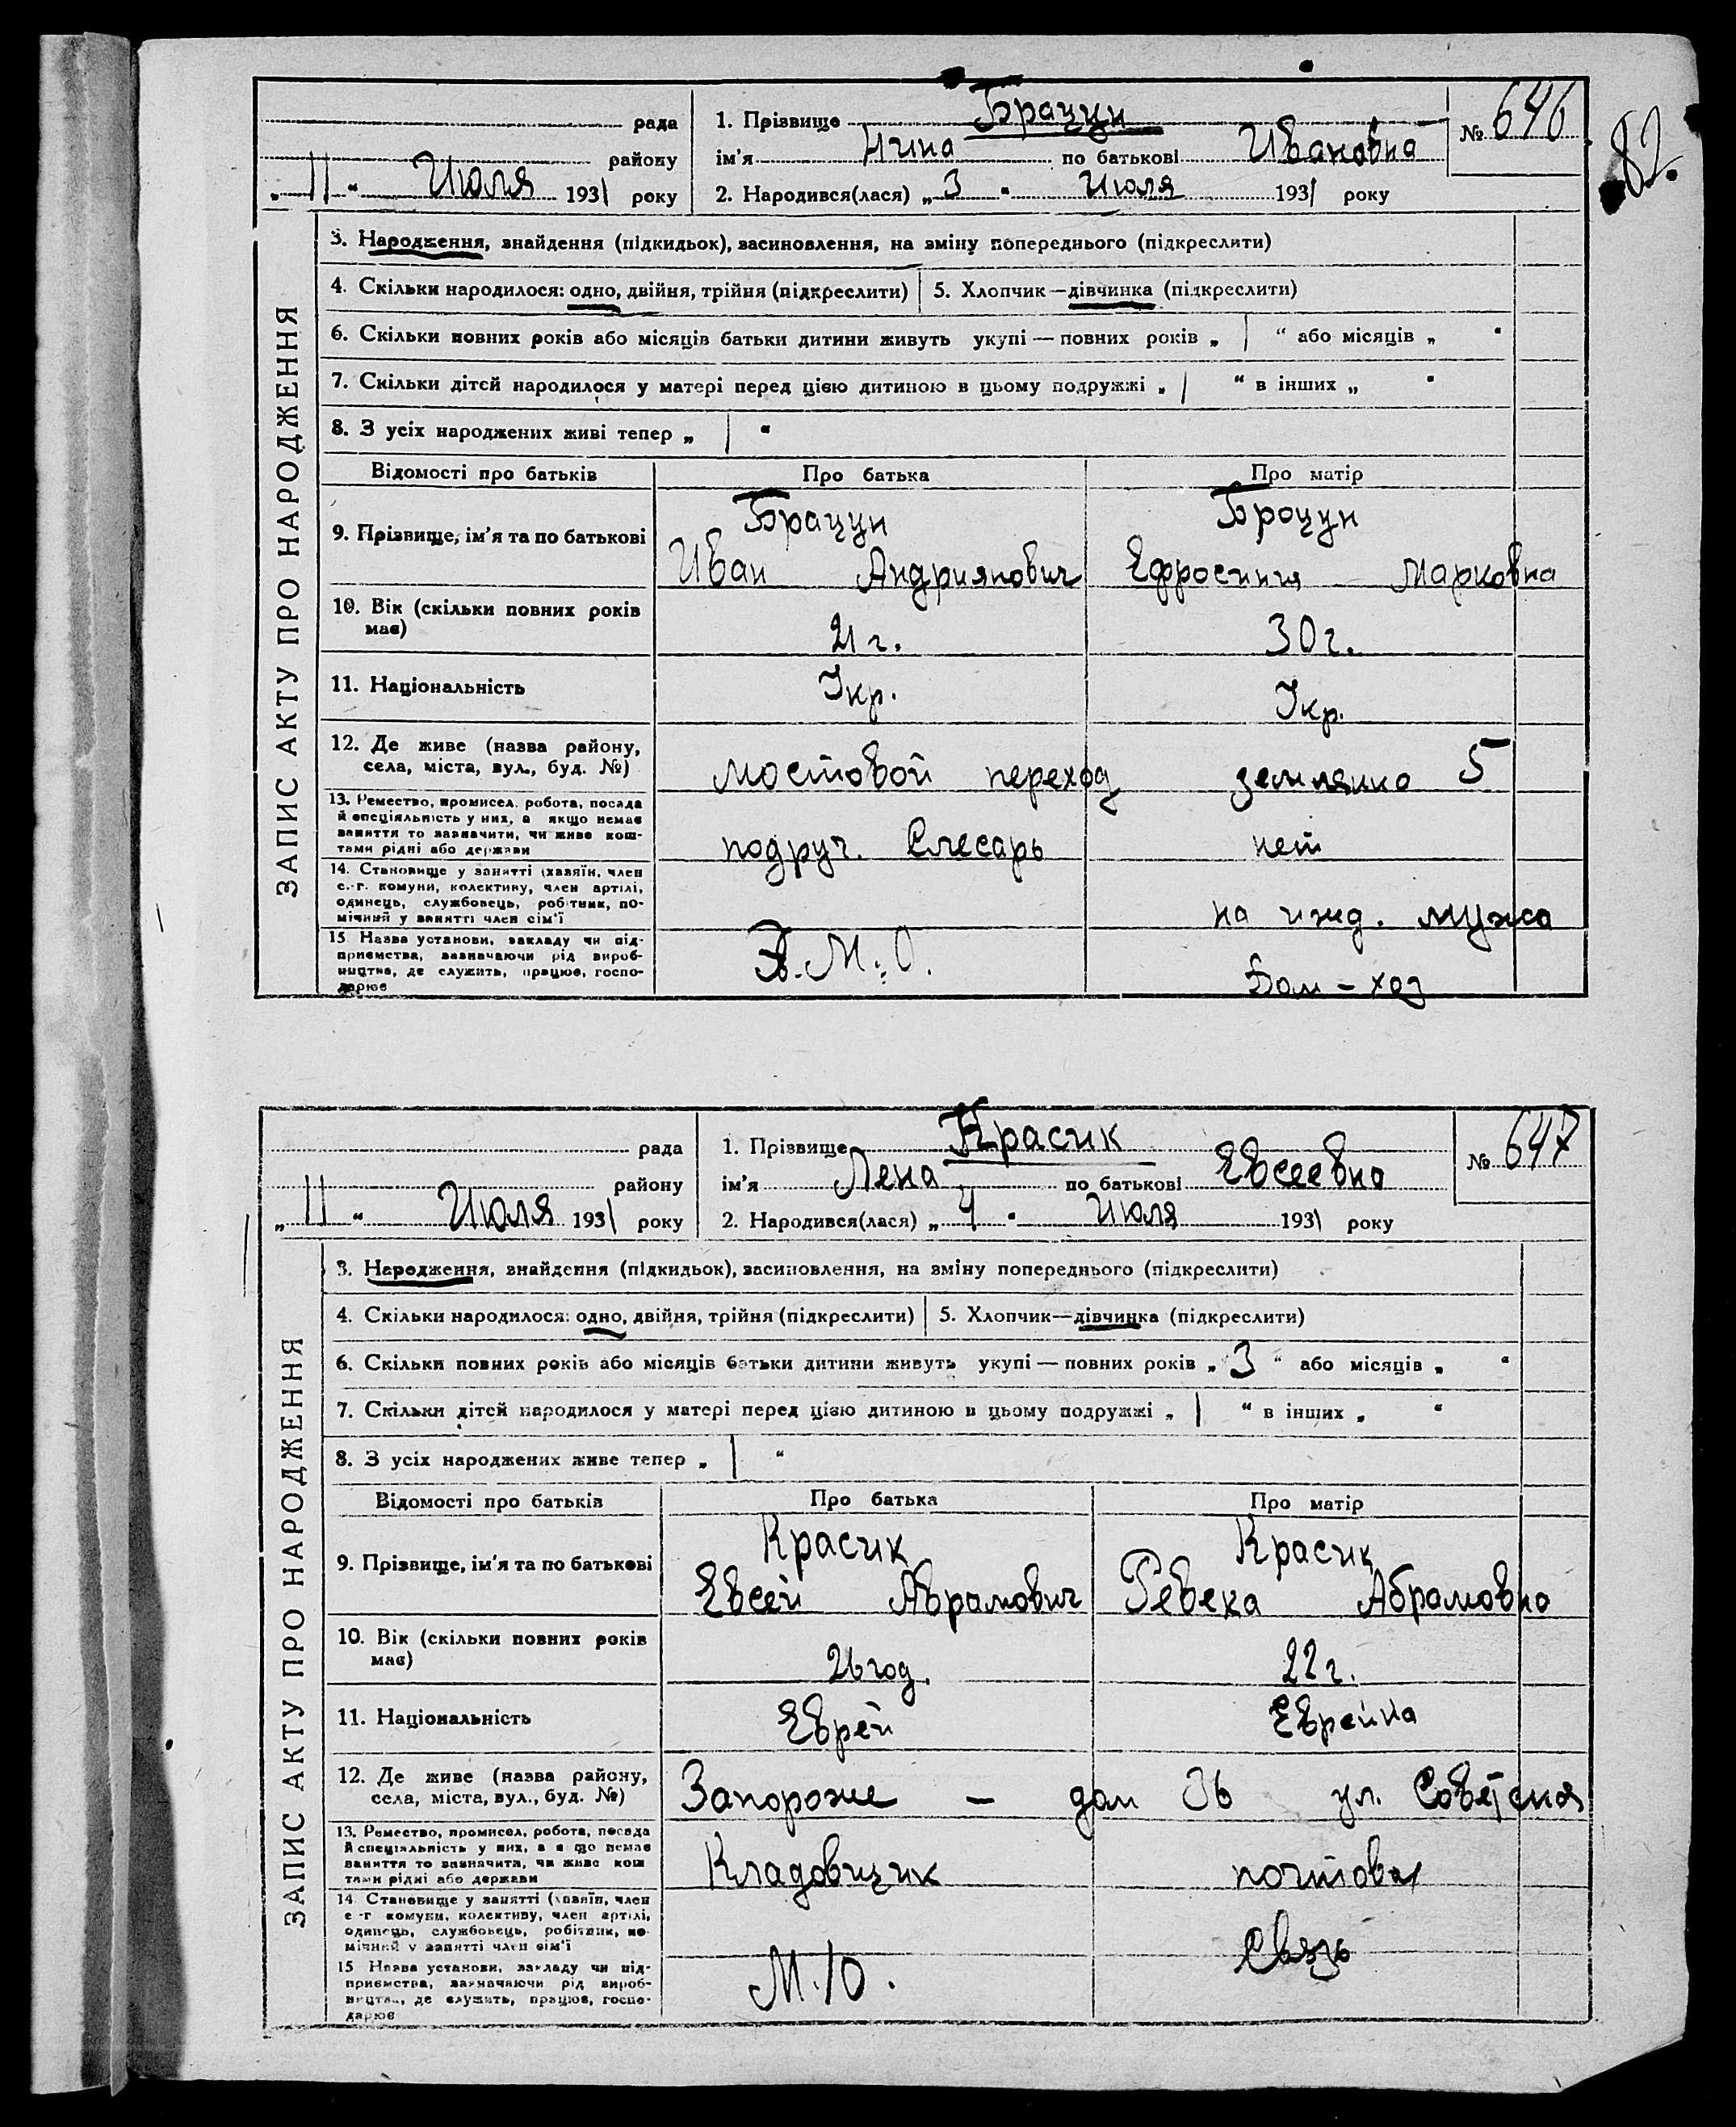 82.
рада
району
„11“ Июля 1931 року
1. Прізвище Брацун
ім'я Нина по батькові Ивановна
2. Народився(лася) „3“ Июля 1931 року
№ 646
ЗАПИС АКТУ ПРО НАРОДЖЕННЯ
3. Народження, знайдення (підкидьок), засиновлення, на зміну попереднього (підкреслити)
4. Скільки народилося: одно, двійня, трійня (підкреслити) 5. Хлопчик—дівчинка (підкреслити)
6. Скільки повних років або місяців батьки дитини живуть укупі — повних років „ | “ або місяців „ “
7. Скільки дітей народилося у матері перед цією дитиною в цьому подружжі „ | “ в інших „ “
8. З усіх народжених живі тепер „ | “
Відомості про батьків Про батька Про матір
9. Прізвище, ім'я та по батькові
Брацун Броцун
Иван Андриянович Ефросиния Марковна
10. Вік (скільки повних років
має)
21 г. 30 г.
11. Національність Укр. Укр.
12. Де живе (назва району,
села, міста, вул., буд. №)
мостовой переход землянка 5
13. Ремество, промисел, робота, посада
й спеціяльність у них, а якщо немає
заняття то зазначити, чи живе кош-
тами рідні або держави
подруч. Слесарь нет
14. Становище у занятті (хазяїн, член
с.-г. комуни, колективу, член артілі,
одинець, службовець, робітник, по-
мічний у занятті член сім'ї
на ижд. мужа
15 Назва установи, закладу чи під-
приємства, зазначаючи рід вироб-
ництва, де служить, працює, госпо-
дарює
М. О. Дом - хоз
рада
району
„11“ Июля 1931 року
1. Прізвище Красик
ім'я Лена по батькові Евсеевна
2. Народився(лася) „4“ Июля 1931 року
№ 647
ЗАПИС АКТУ ПРО НАРОДЖЕННЯ
3. Народження, знайдення (підкидьок), засиновлення, на зміну попереднього (підкреслити)
4. Скільки народилося: одно, двійня, трійня (підкреслити) 5. Хлопчик—дівчинка (підкреслити)
6. Скільки повних років або місяців батьки дитини живуть укупі — повних років „ 3 “ або місяців „ “
7. Скільки дітей народилося у матері перед цією дитиною в цьому подружжі „ | “ в інших „ “
8. З усіх народжених живе тепер „ | “
Відомості про батьків Про батька Про матір
9. Прізвище, ім'я та по батькові
Красик Красик
Евсей Аврамович Ревека Абрамовна
10. Вік (скільки повних років
має)
26 год. 22 г.
11. Національність Еврей Еврейка
12. Де живе (назва району,
села, міста, вул., буд. №)
Запороже — дом 36 ул. Советская
13. Ремество, промисел, робота, посада
й спеціяльність у них, а якщо немає
заняття то зазначити, чи живе кош
тами рідні або держави
Кладовщик почтовая
14 Становище у занятті (хазяїн, член
с-г комуни, колективу, член артілі,
одинець, службовець, робітник, по-
мічний у занятті член сім'ї
связь
15 Назва установи, закладу чи під-
приємства, зазначаючи рід вироб-
ництва, де служить, працює, госпо-
дарює